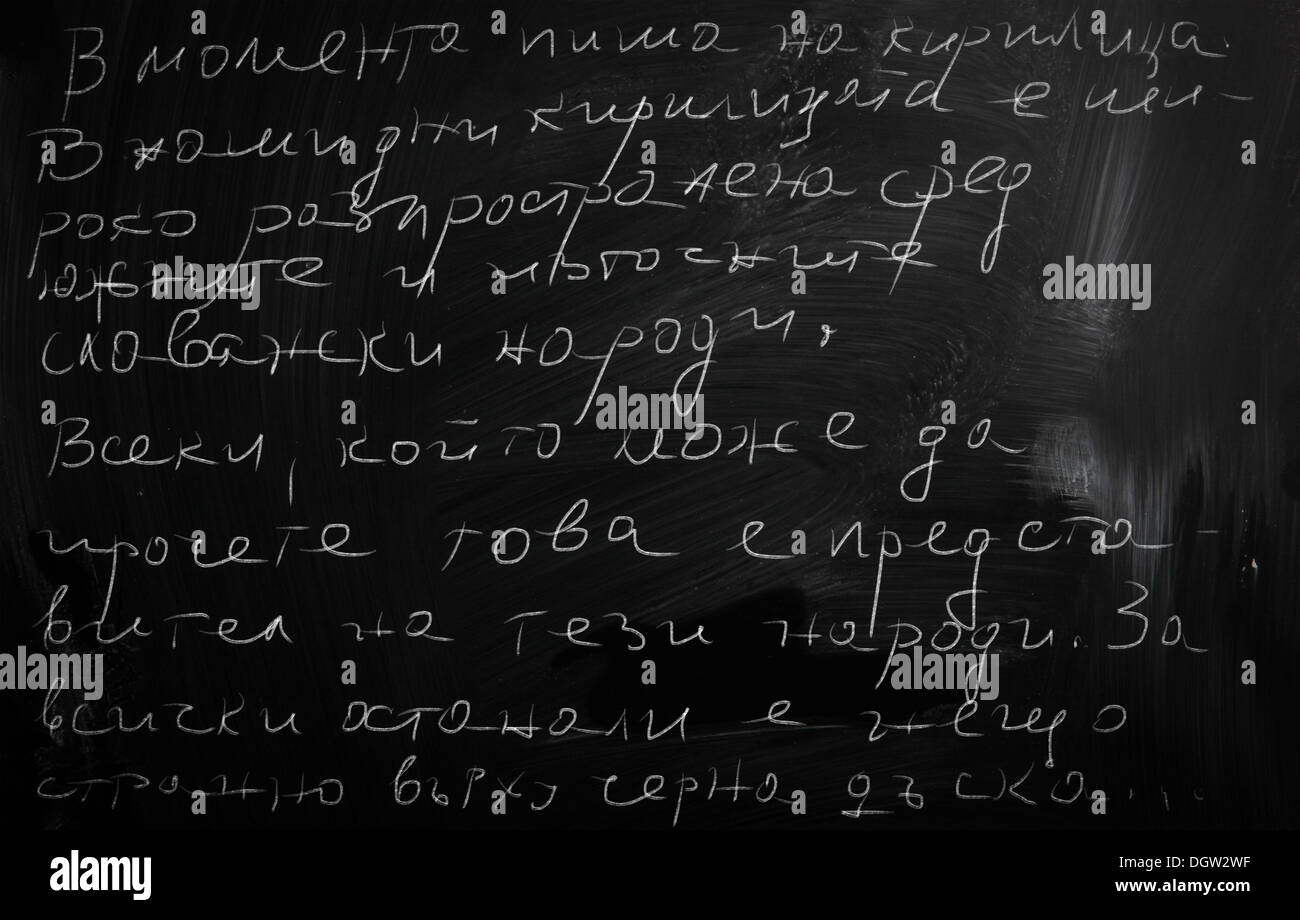 В момента пиша на кирилица.
В наши дни кирилицата е ши-
роко разпространена сред
южните и източните
славянски народи.
Всеки, който може да
прочете това е предста-
вител на тези народи. За
всички останали е нещо
странно върху черна дъска....
alamy
Image ID: DGW2WF
www.alamy.com